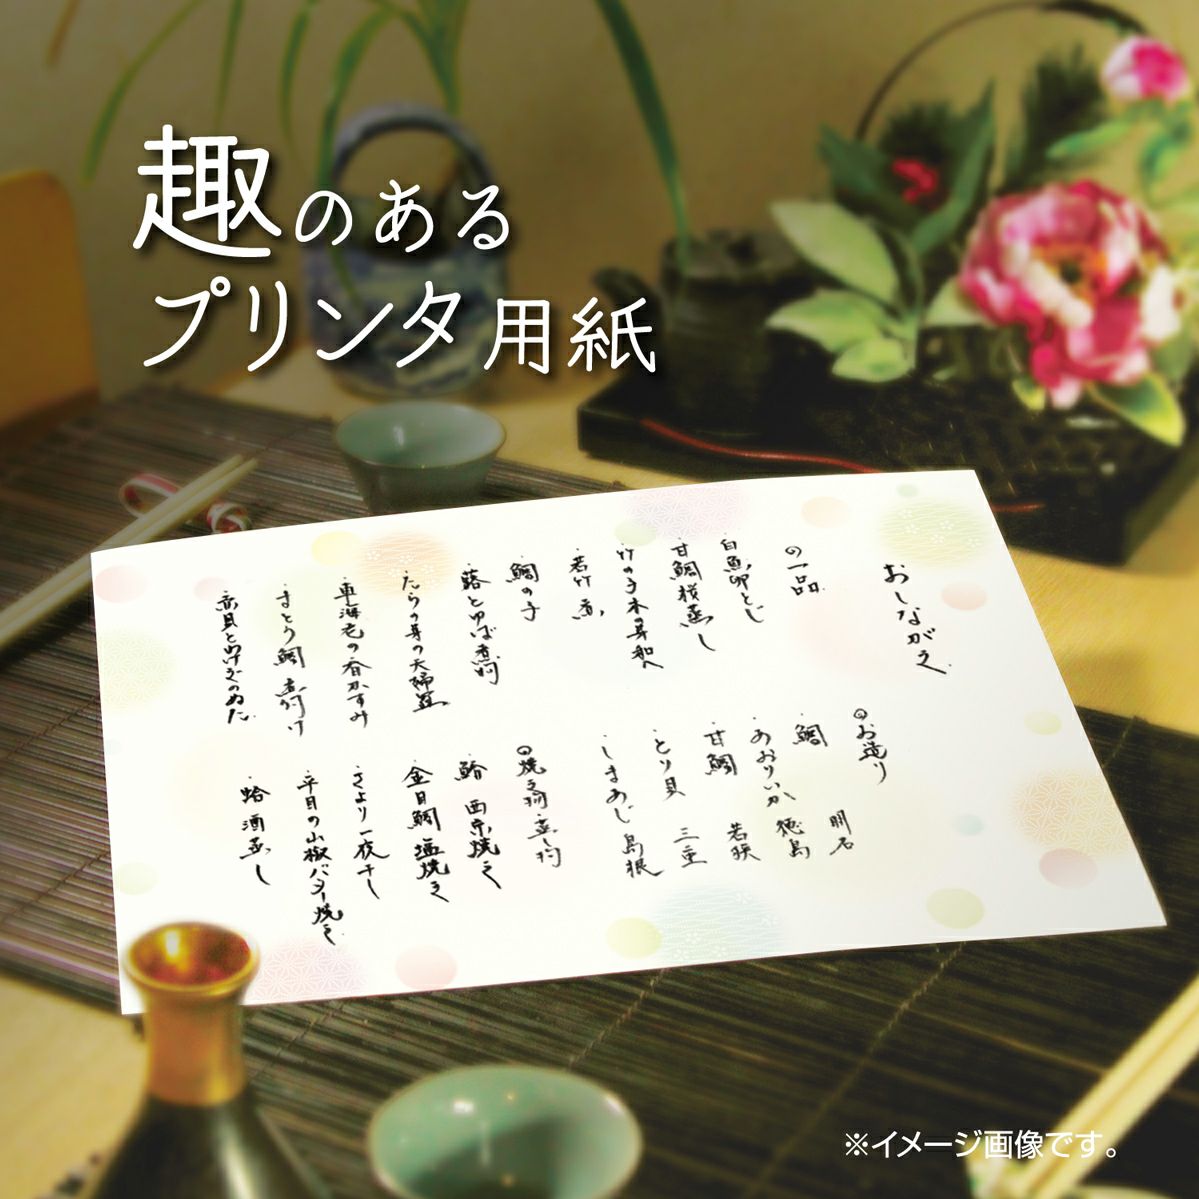 趣のある
プリンタ用紙
おしながき
の一品
白魚卵とじ
甘鯛桜蒸し
竹の子木の芽和へ
若竹煮
鯛の子
蕗とゆば煮物
たらの芽の天婦羅
車海老の香かすみ
まとう鯛 煮付け
赤貝とわけぎのぬた
お造り
鯛 明石
あおりいか 徳島
甘鯛 若狭
とり貝 三重
しまあじ 島根
焼き物・蒸し物
西京焼き
金目鯛塩焼き
さより一夜干し
平目の山椒バター焼き
蛤酒蒸し
※イメージ画像です。